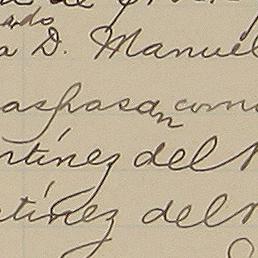 ado
a D. Manuel
aspasan como
rtínez del
rtínez del